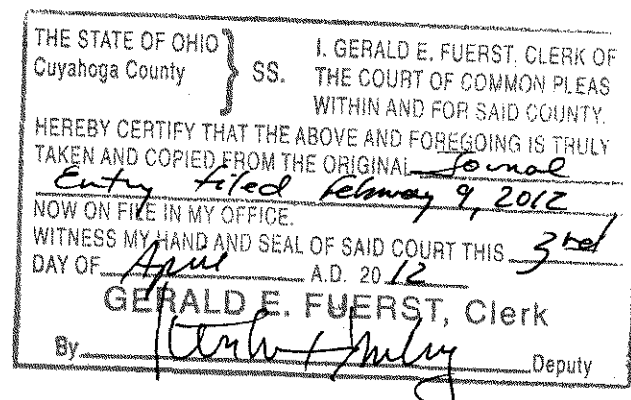 THE STATE OF OHIO
Cuyahoga County
SS.
I. GERALD E. FUERST, CLERK OF
THE COURT OF COMMON PLEAS
WITHIN AND FOR SAID COUNTY.
HEREBY CERTIFY THAT THE ABOVE AND FOREGOING IS TRULY
TAKEN AND COPIED FROM THE ORIGINAL Journal
Entry filed February 9, 2012
NOW ON FILE IN MY OFFICE.
WITNESS MY HAND AND SEAL OF SAID COURT THIS 3rd
DAY OF April A.D. 20 12
GERALD E. FUERST, Clerk
By Deputy